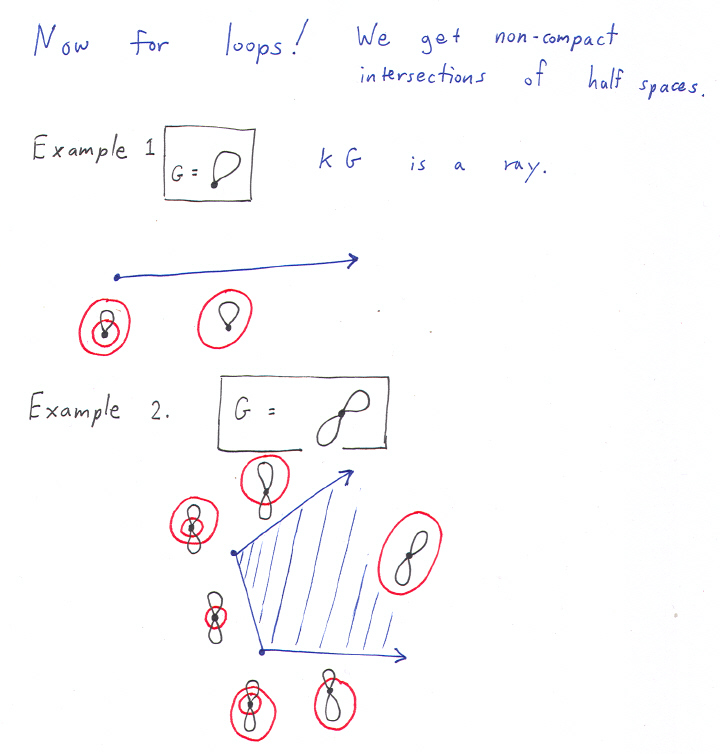 Now for loops! We get non-compact
intersections of half spaces.
Example 1
G =
kG is a ray.
Example 2.
G =